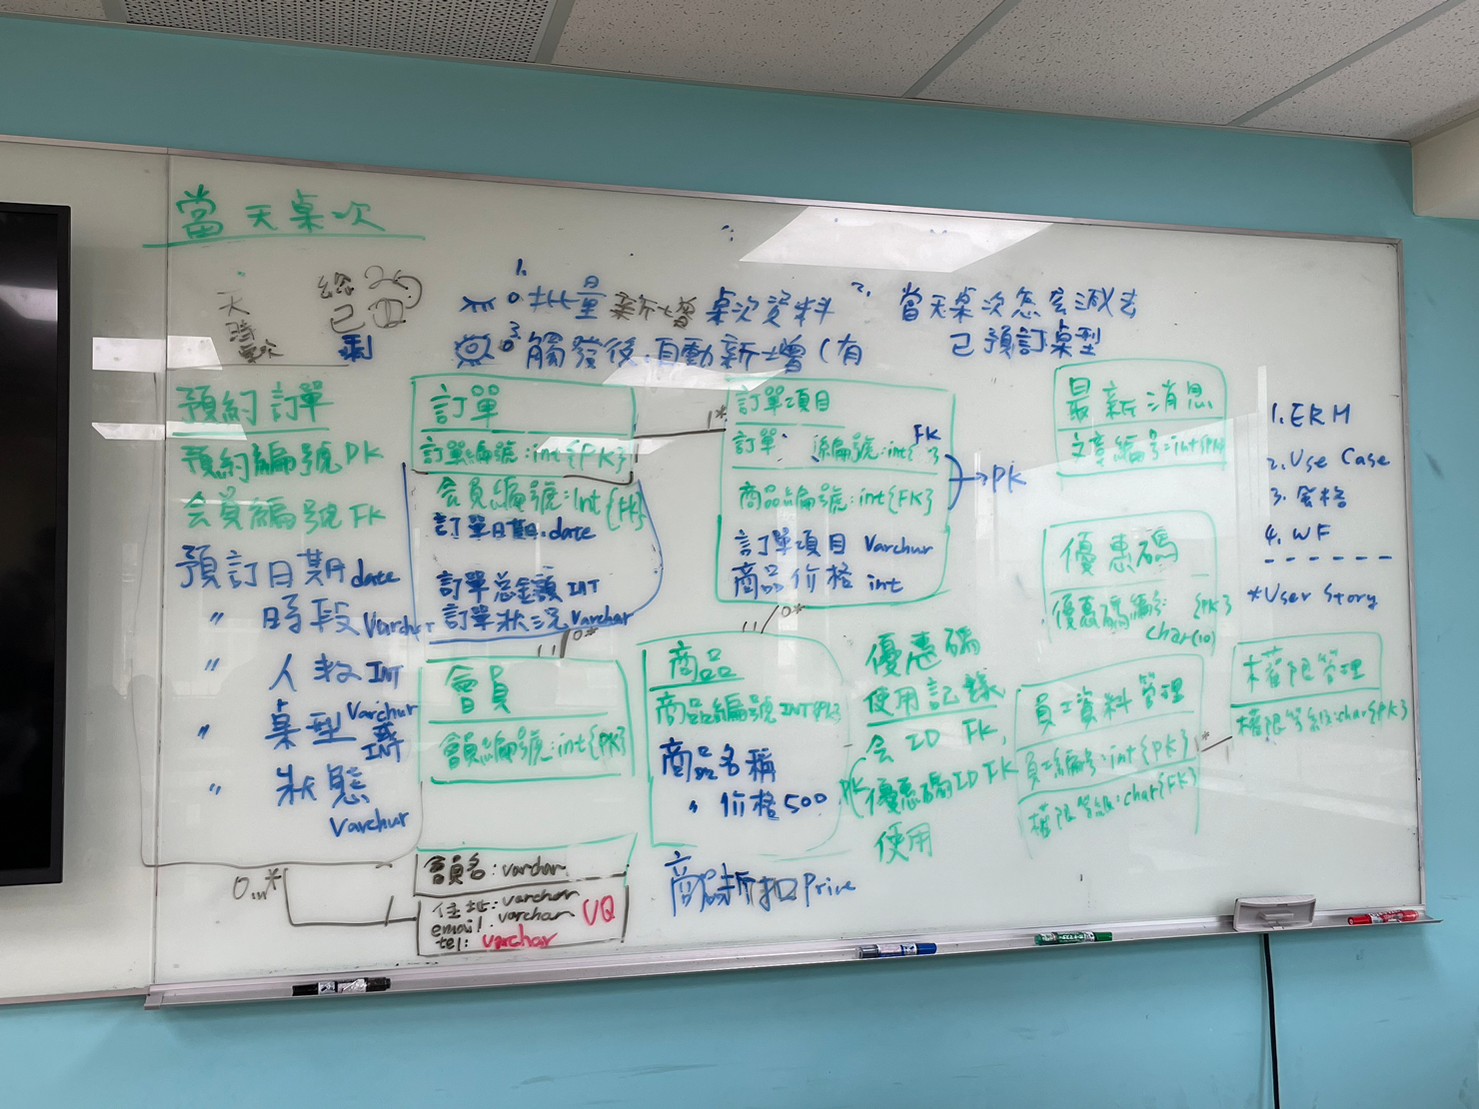 當天桌次
天
時
總20
已訂
剩
1.
批量新增桌次資料
2. 當天桌次怎麼減去
已預訂桌型
3.
觸發後自動新增(有
預約訂單
預約編號PK
会員編號FK
預訂日期date
〃 時段Varchar
〃 人數INT
〃 桌型Varchar或INT
〃 狀態
Varchar
訂單
訂單編號:int{PK}
会員編號:Int{FK}
訂單日期.date
訂單总金額INT
訂單狀況Varchar
1*
訂單項目
訂單 編號:int{FK}
商品編號:int{FK}
PK
訂單項目 Varchar
商品价格 int
0*
0*
會員
會員編號:int{PK}
會員名:varchar
住址:varchar
email:varchar UQ
tel:varchar
0...*
商品
商品編號INT{PK}
商品名稱
〃 价格500
商品折扣Price
優惠碼
使用記錄
会ID FK,
PK
優惠碼ID FK
使用
最新消息
文章編号:int{PK}
優惠碼
優惠碼編号:{PK}
char(10)
員工資料管理
員工編号:int{PK}
權限等級:char{FK}
1*
權限管理
權限等級:char{PK}
1.ERM
2.Use Case
3.
4.WF
------
*User Story